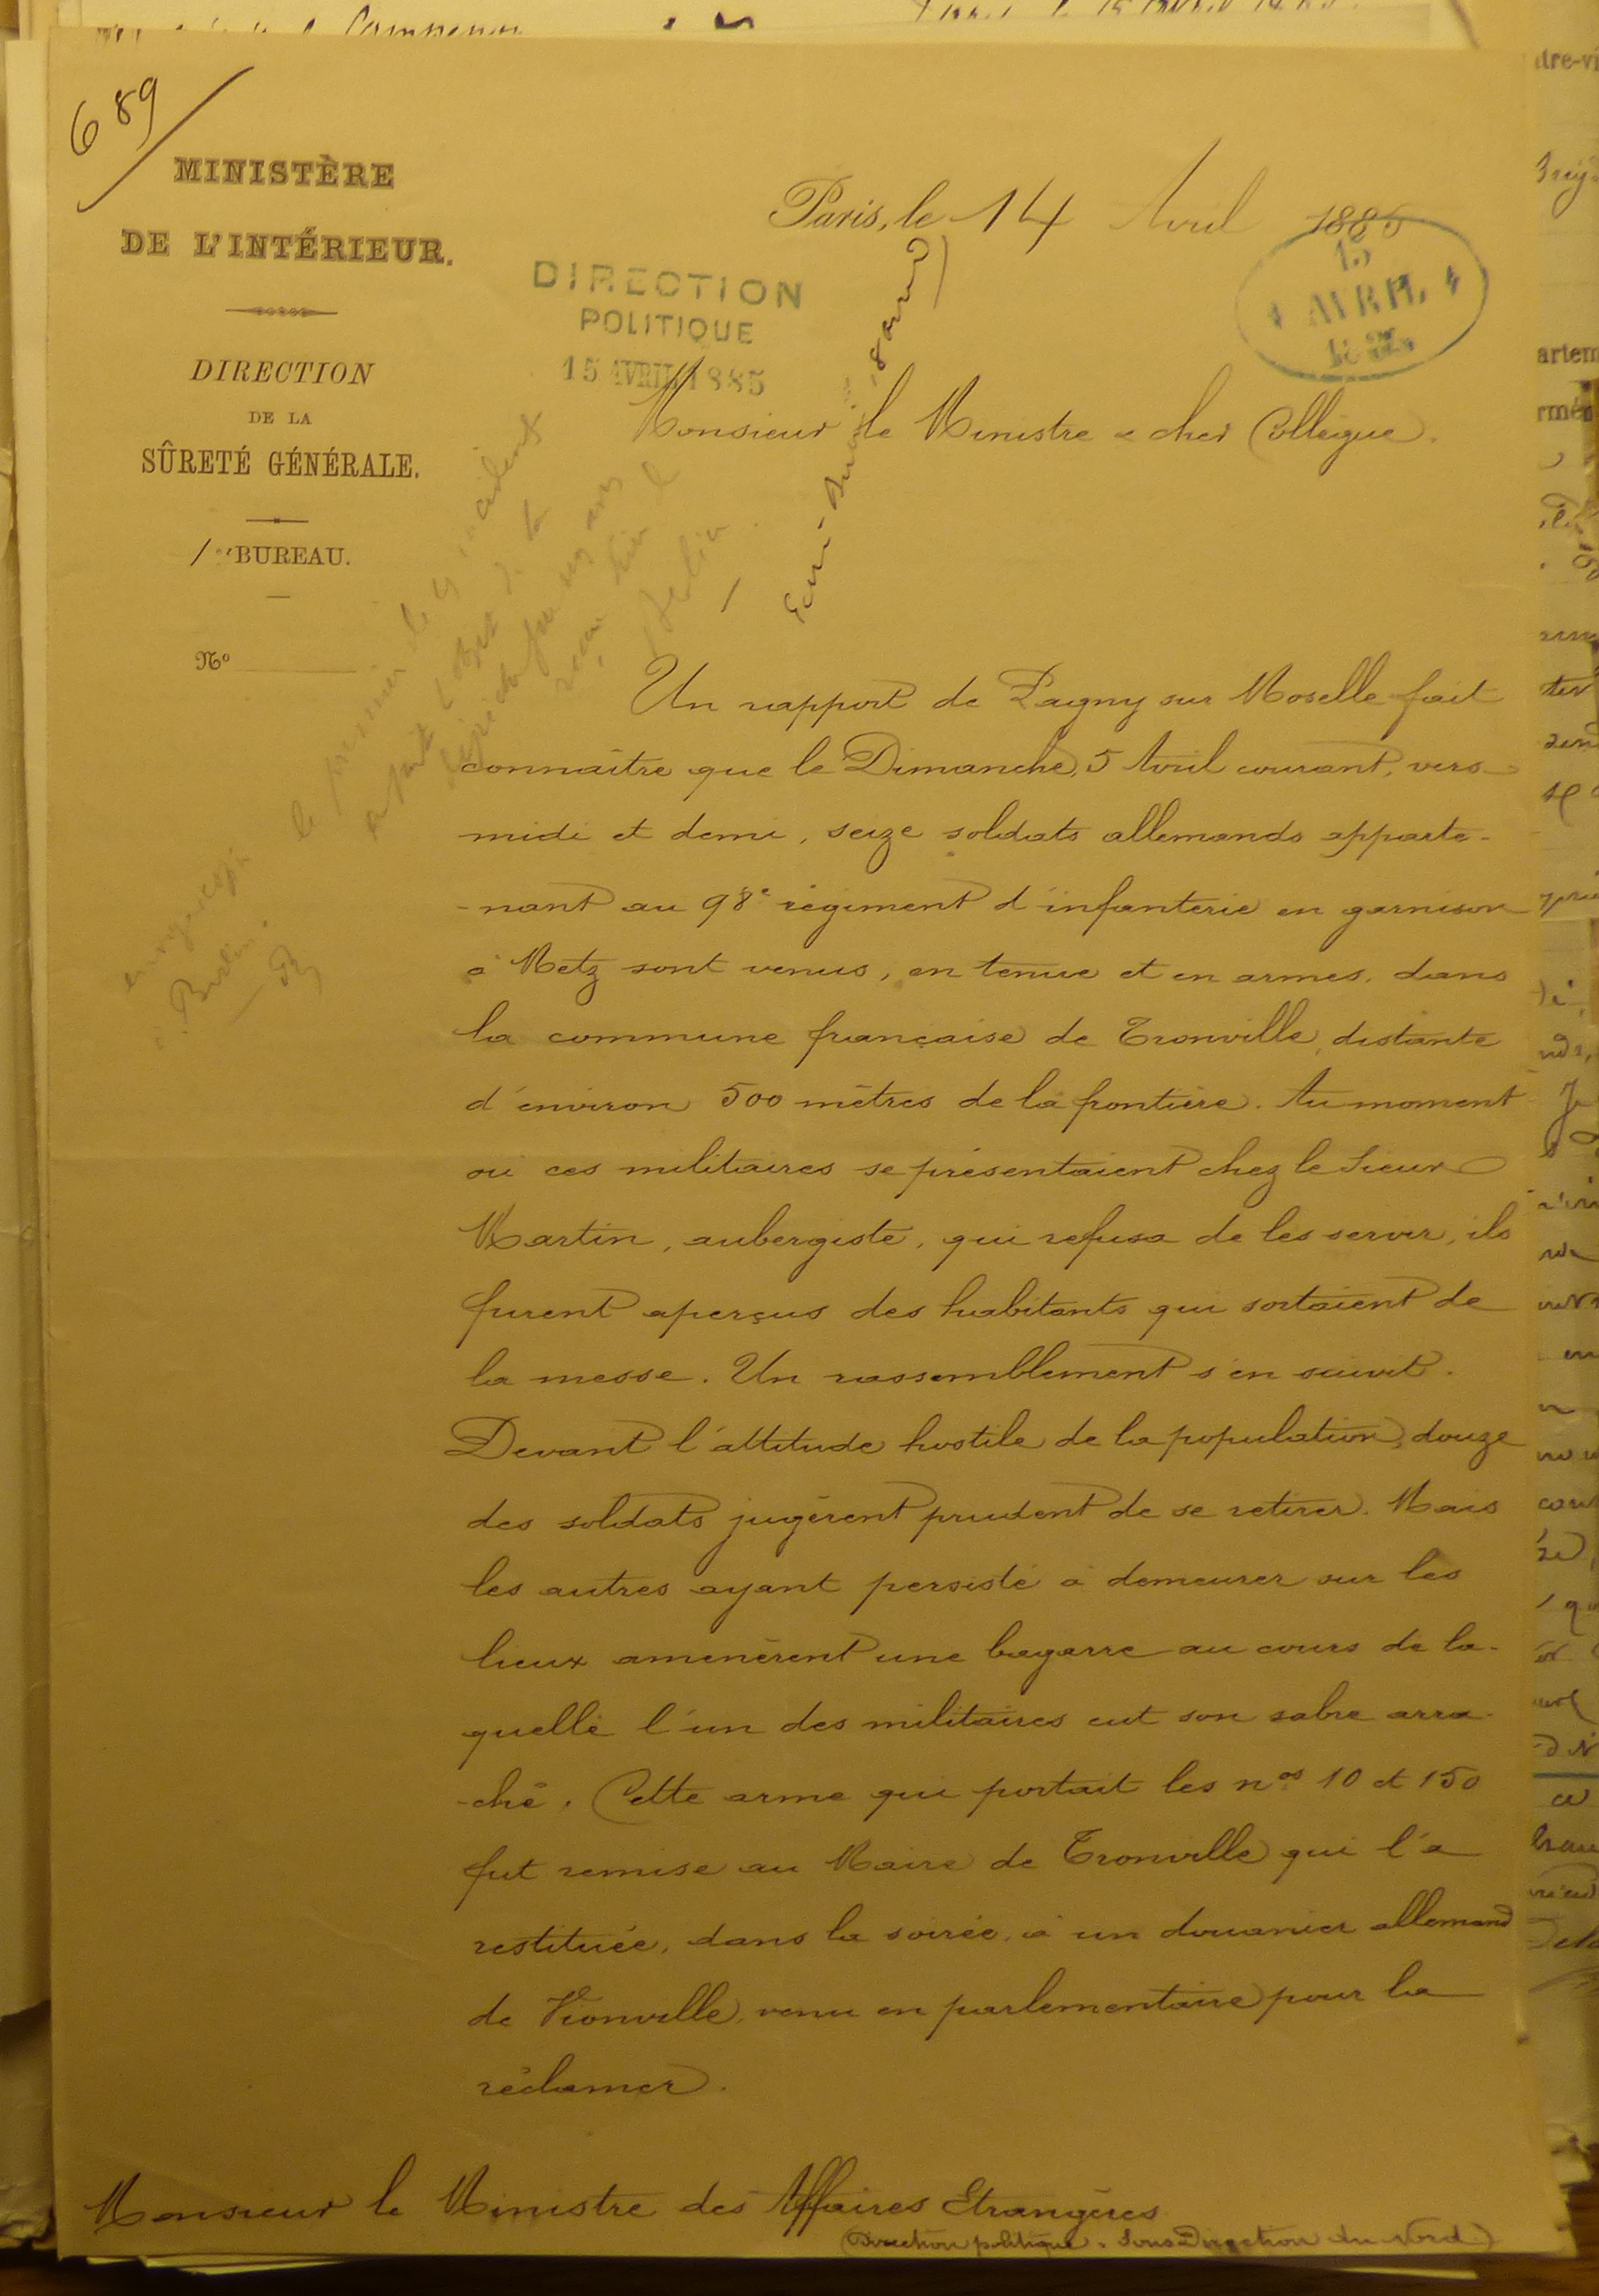 689
MINISTÈRE
DE L'INTÉRIEUR.
DIRECTION
DE LA
SÛRETÉ GÉNÉRALE.
1er BUREAU.
No
Paris, le 14 Avril 1885
DIRECTION
POLITIQUE
15 AVRIL 1885
15
AVRIL
Monsieur le Ministre & cher Collègue.
Un rapport de Pagny sur Moselle fait
connaître que le Dimanche, 5 Avril courant, vers
midi et demi, seize soldats allemands apparte-
-nant au 98e régiment d'infanterie en garnison
à Metz sont venus, en tenue et en armes, dans
la commune française de Tronville, distante
d'environ 500 mètres de la frontière. Au moment
où ces militaires se présentaient chez le Sieur
Martin, aubergiste, qui refusa de les servir, ils
furent aperçus des habitants qui sortaient de
la messe. Un rassemblement s'en suivit.
Devant l'attitude hostile de la population, douze
des soldats jugèrent prudent de se retirer. Mais
les autres ayant persisté à demeurer sur les
lieux amenèrent une bagarre au cours de la-
quelle l'un des militaires eut son sabre arra-
-ché. Cette arme qui portait les nos 10 et 150
fut remise au Maire de Tronville qui l'a
restituée, dans la soirée, à un douanier allemand
de Vionville, venu en parlementaire pour la
réclamer.
Monsieur le Ministre des Affaires Etrangères
(Direction politique. Sous Direction du Nord)